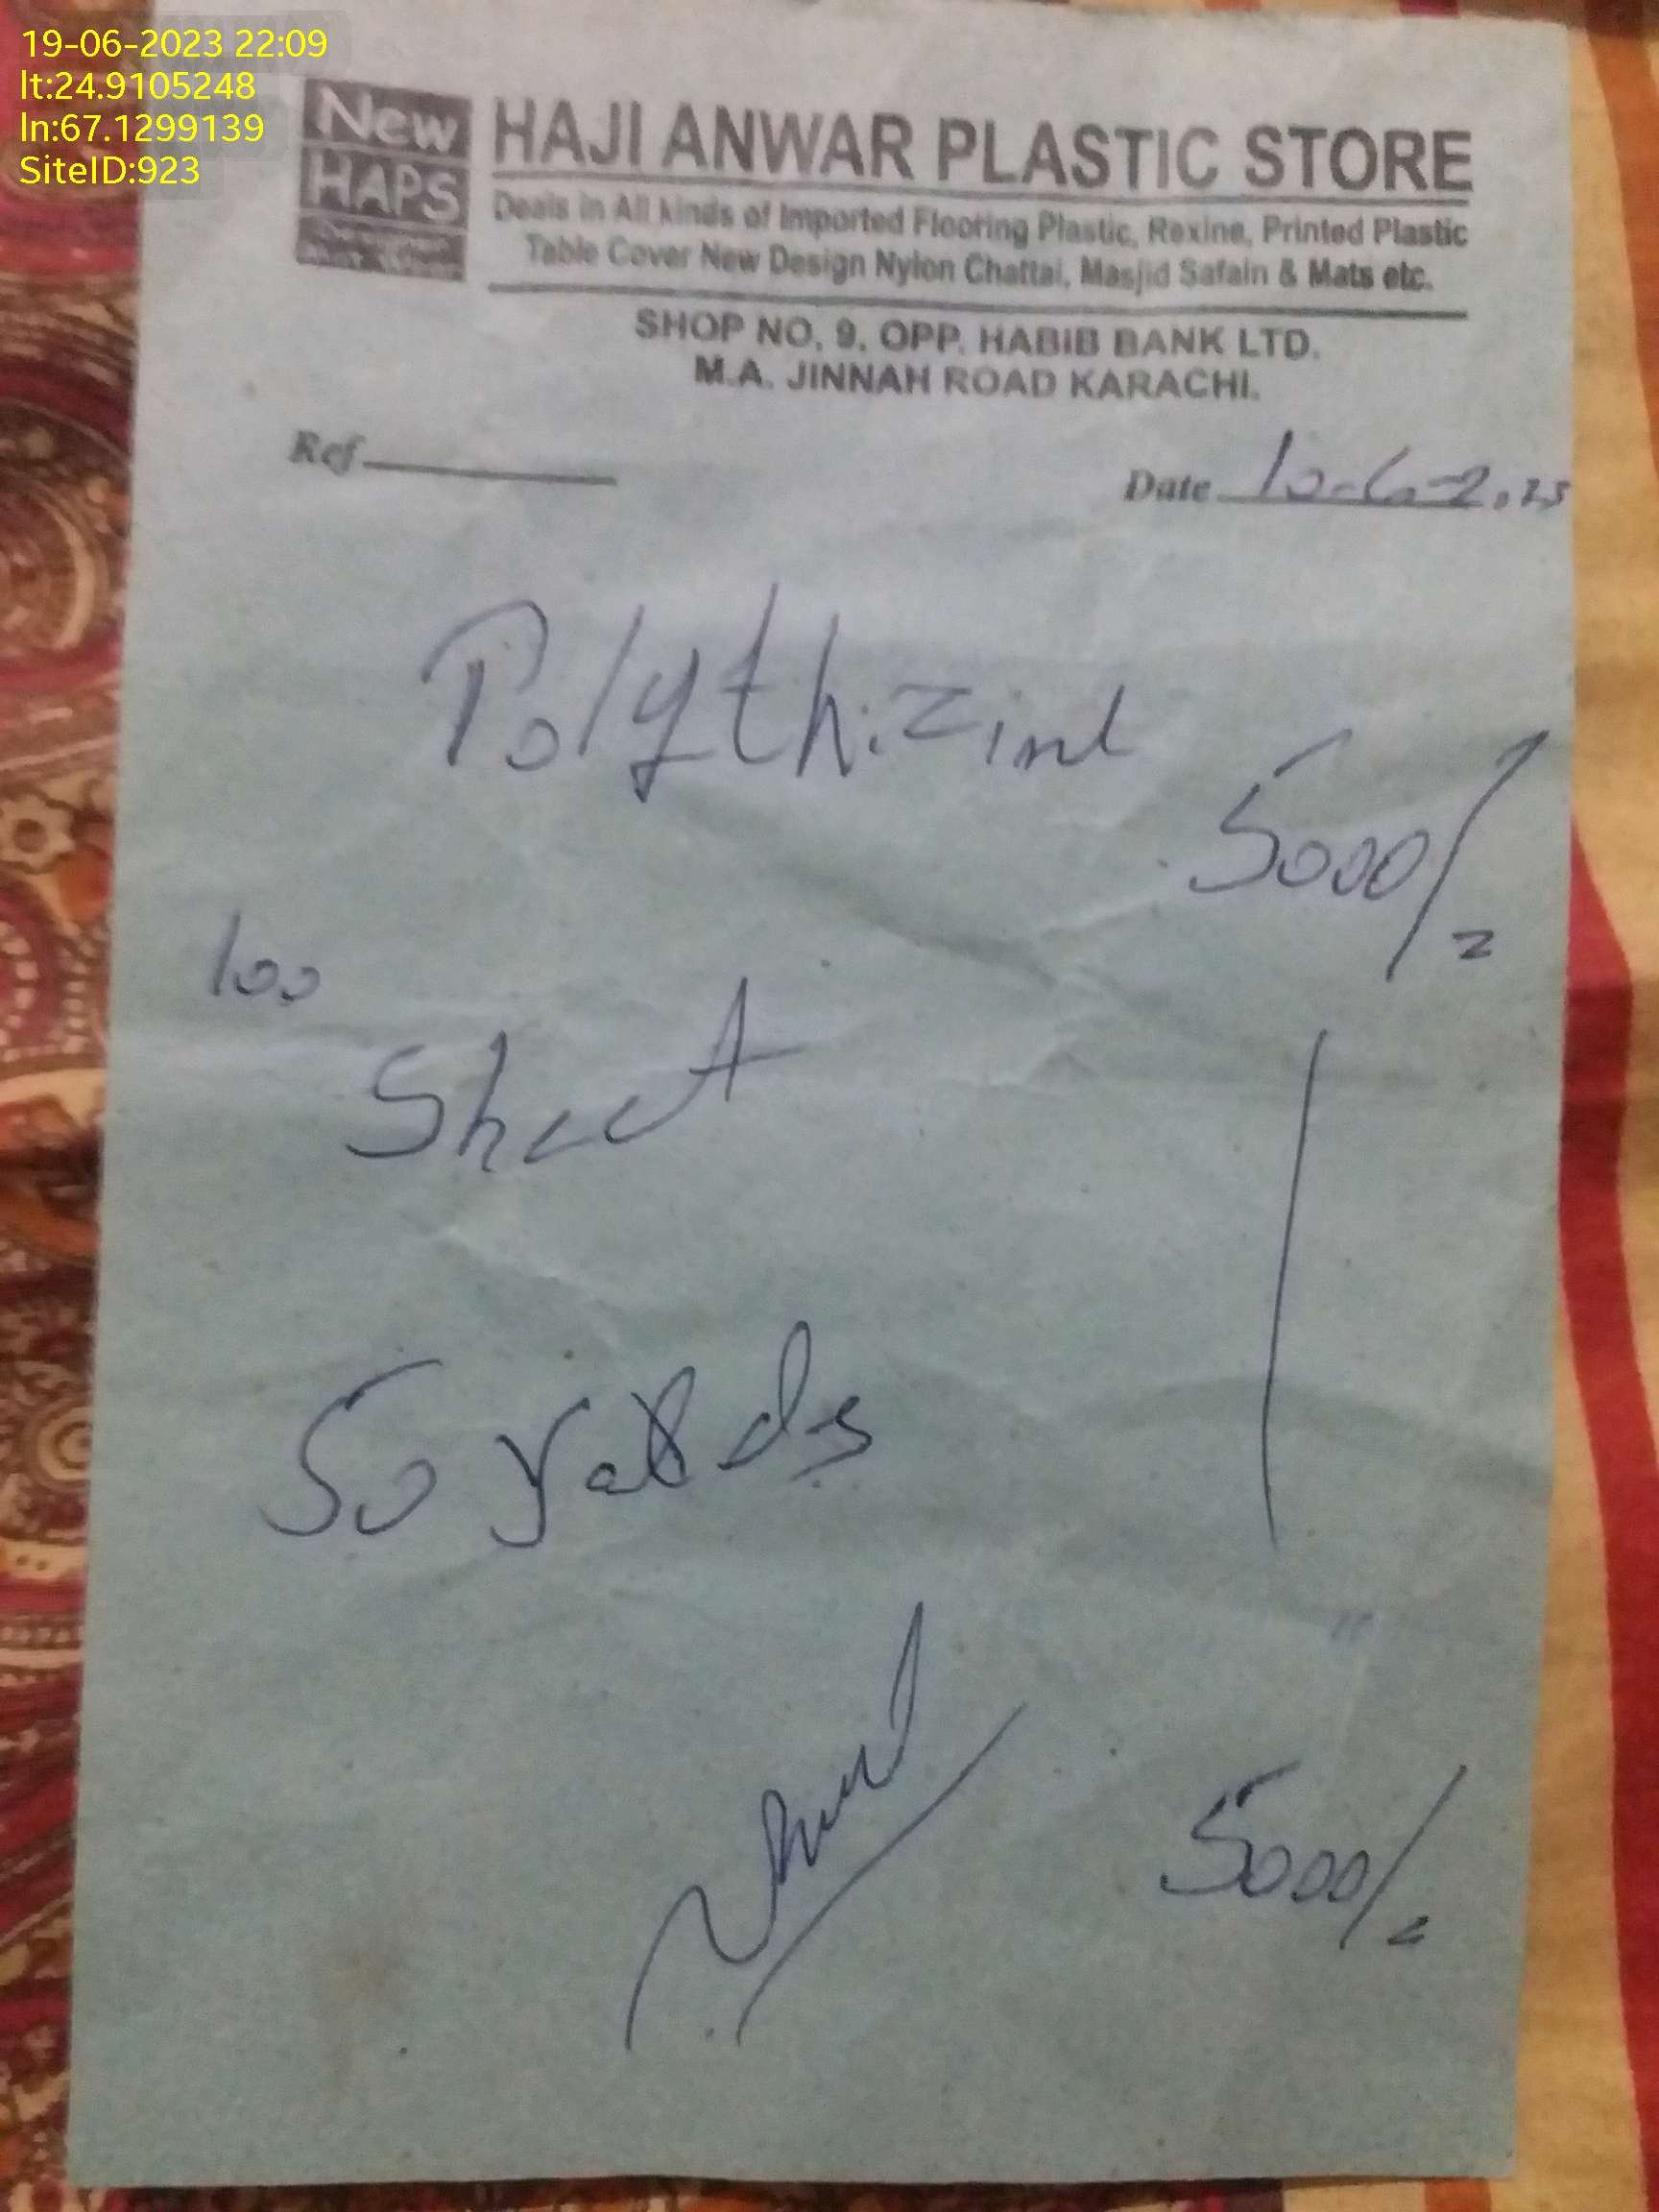 19-06-2023 22:09
lt:24.9105248
ln:67.1299139
SiteID:923
New
HAPS
HAJI ANWAR PLASTIC STORE
Deals in All kinds of Imported Flooring Plastic, Rexine, Printed Plastic
Table Cover New Design Nylon Chattai, Masjid Safain & Mats etc.
SHOP NO. 9, OPP. HABIB BANK LTD.
M.A. JINNAH ROAD KARACHI.
Ref
Date 10-6-2023
5000/=
100
Sheet
50 Yards
5000/=